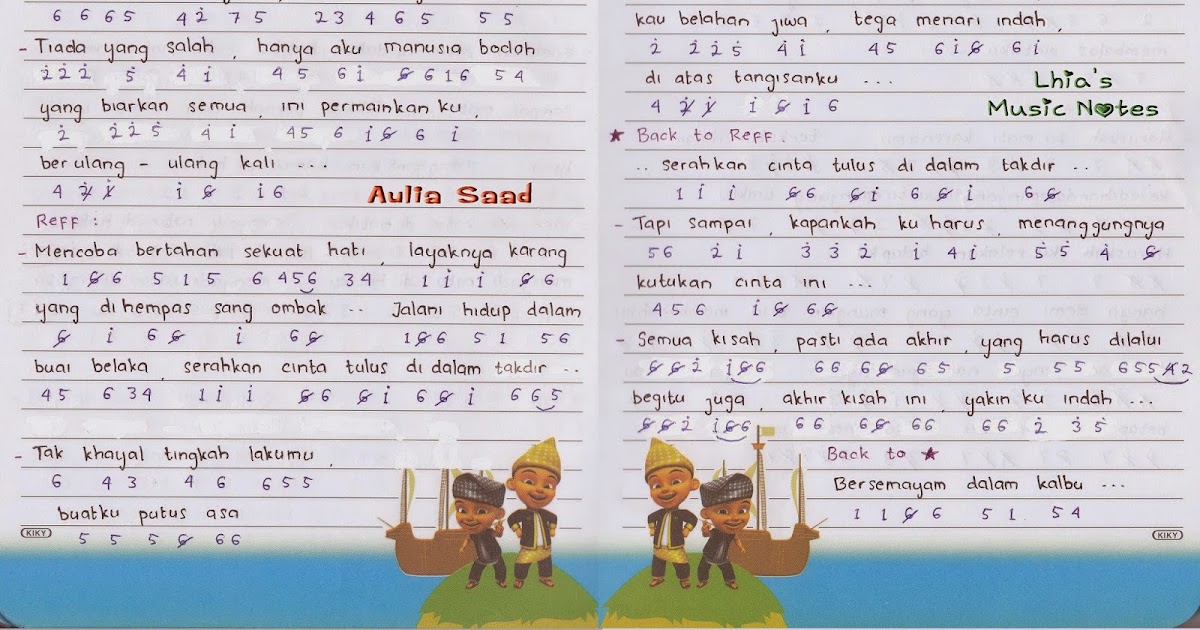 6 6 6 5 4 2̇ 7 5 2 3 4 6 5 5 5
- Tiada yang salah, hanya aku manusia bodoh
2̇ 2̇ 2̇ 5̇ 4̇ 1̇ 4 5 6 1̇ 6̸ 6 1 6 5 4
yang biarkan semua, ini permainkan ku,
2̇ 2̇ 2̇ 5̇ 4̇ 1̇ 4 5 6 1̇ 6̸ 6 1̇
berulang - ulang kali ...
4 2̸̇ 1̸̇ 1̇ 6̸ 1̇ 6
Aulia Saad
Reff :
- Mencoba bertahan sekuat hati, layaknya karang
1 6̸ 6 5 1 5 6 4 5 6 3 4 1 1̇ 1̇ 6̸ 6
yang dihempas sang ombak .. Jalani hidup dalam
6̸ 1̇ 6 6̸ 1̇ 6 6̸ 1 6̸ 6 5 1 5 6
buai belaka, serahkan cinta tulus di dalam takdir ..
4 5 6 3 4 1 1̇ 1̇ 6̸ 6 6̸ 1̇ 6 6̸ 1̇ 6 6 5
- Tak khayal tingkah lakumu,
6 4 3 4 6 6 5 5
buatku putus asa
5 5 5 6̸ 6 6
KIKY
kau belahan jiwa, tega menari indah,
2̇ 2̇ 2̇ 5̇ 4̇ 1̇ 4 5 6 1̇ 6̸ 6 1̇
di atas tangisanku ...
4 2̸̇ 1̸̇ 1̇ 6̸ 1̇ 6
Lhia's
Music Notes
★ Back to Reff :
.. serahkan cinta tulus di dalam takdir ..
1 1̇ 1̇ 6̸ 6 6̸ 1̇ 6 6̸ 1̇ 6 6̸
- Tapi sampai, kapankah ku harus, menanggungnya
5 6 2̇ 1̇ 3̇ 3̇ 2̇ 1̇ 4̇ 1̇ 5̇ 5̇ 4 6̸
kutukan cinta ini ...
4 5 6 1̇ 6̸ 6 6̸
- Semua kisah, pasti ada akhir, yang harus dilalui
6̸ 6̸ 2̇ 1̇ 6̸ 6 6 6 6 6̸ 6 5 5 5 5 6 5 5 4̸ 2
begitu juga, akhir kisah ini, yakin ku indah ...
6̸ 6̸ 2̇ 1̇ 6̸ 6 6 6 6 6̸ 6 6 6 6 2̇ 3̇ 5̇
Back to ★
Bersemayam dalam kalbu ...
1 1 6̸ 6 5 1 5 4
KIKY